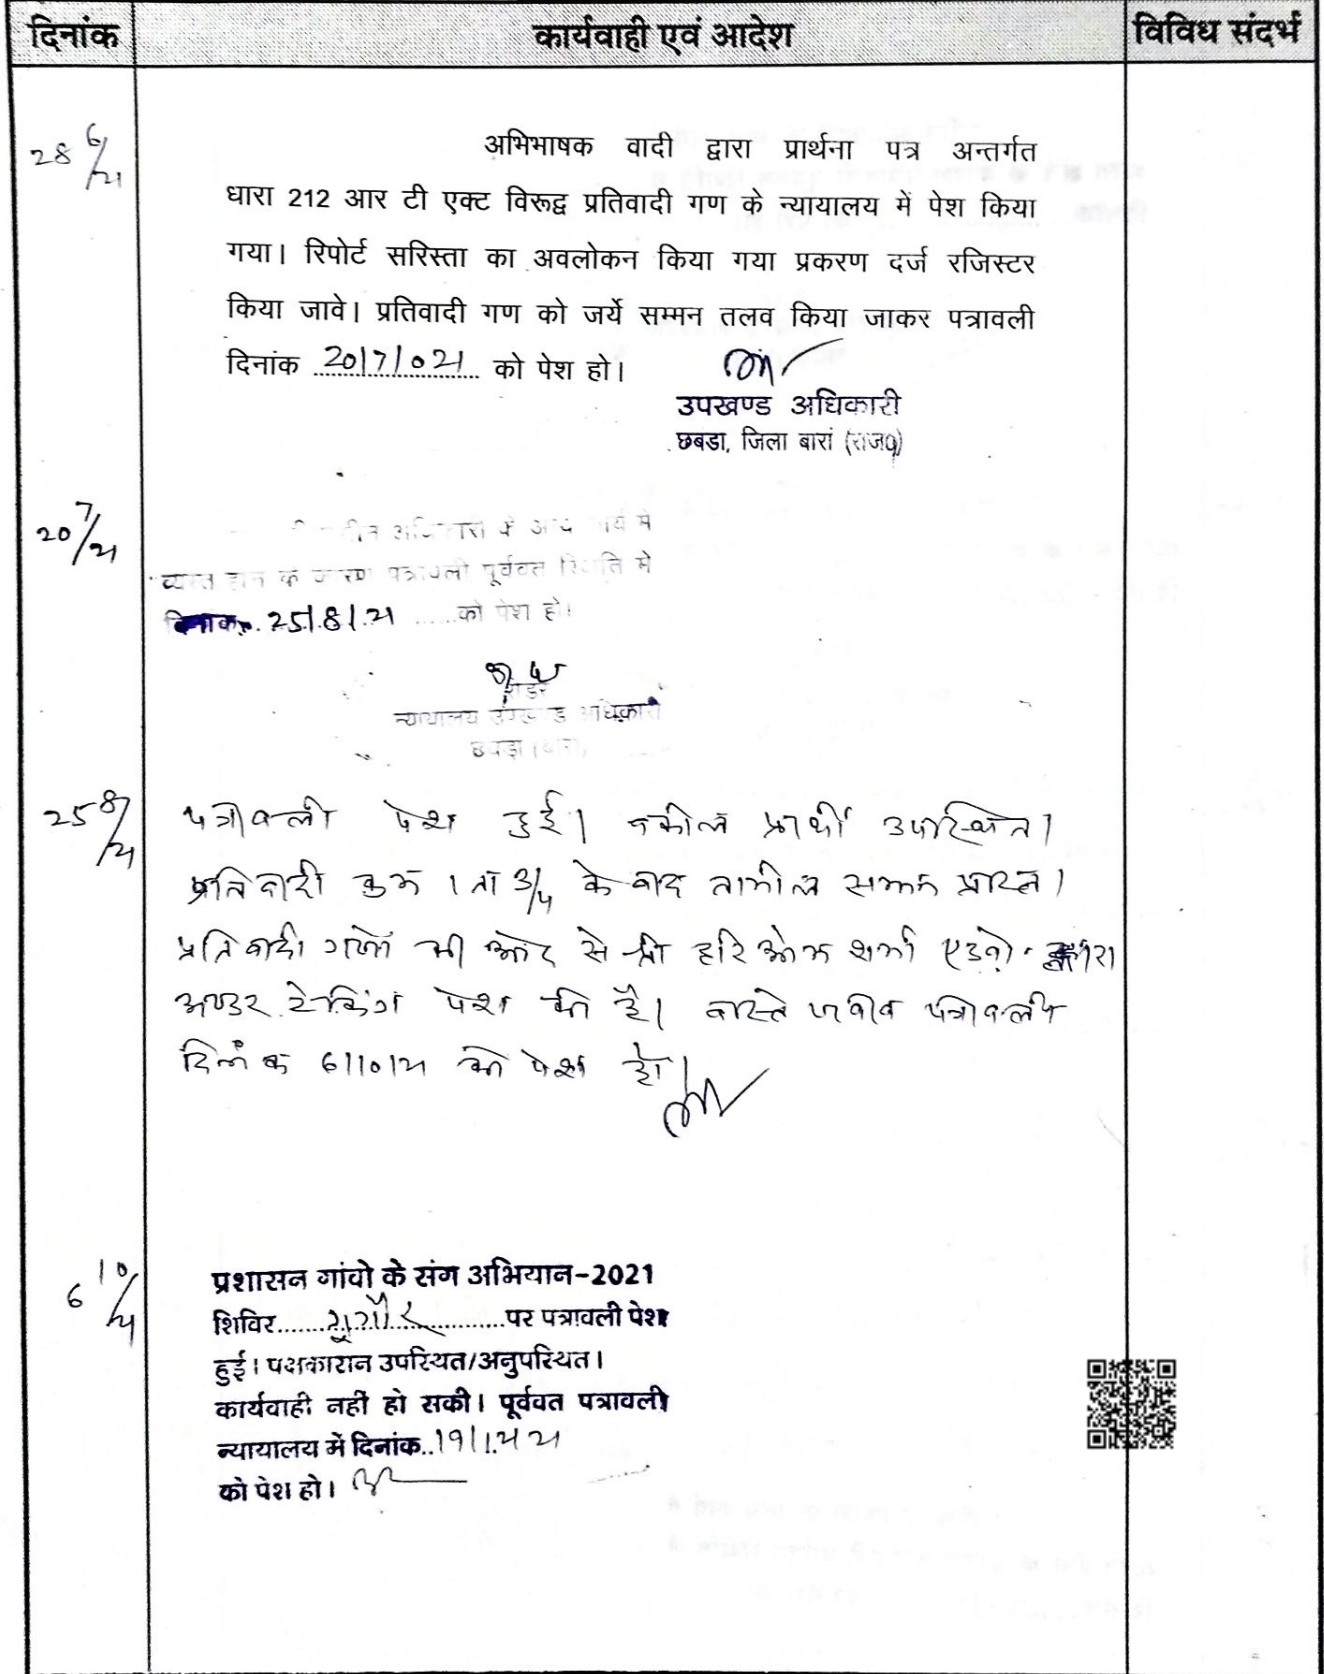 दिनांक कार्यवाही एवं आदेश विविध संदर्भ
28 6/21
अभिभाषक वादी द्वारा प्रार्थना पत्र अन्तर्गत
धारा 212 आर टी एक्ट विरूद्व प्रतिवादी गण के न्यायालय में पेश किया
गया। रिपोर्ट सरिस्ता का अवलोकन किया गया प्रकरण दर्ज रजिस्टर
किया जावे। प्रतिवादी गण को जर्ये सम्मन तलव किया जाकर पत्रावली
दिनांक 20/7/021 को पेश हो।
उपखण्ड अधिकारी
छबडा, जिला बारां (राज0)
20 7/21
कार्य मे
व्यस्त होने के कारण पत्रावली पूर्ववत स्थिति मे
दिनांक 25/8/21 को पेश हो।
रीडर
न्यायालय उपखण्ड अधिकारी
छबड़ा (बारां)
25 8/21
पत्रावली पेश हुई। वकील प्रार्थी उपस्थित।
प्रतिवादी क्रम 1 ता 3/4 के बाद तामील सम्मन प्राप्त।
प्रतिवादी गणों की ओर से श्री हरिओम शर्मा एडवो. द्वारा
अण्डर टेकिंग पेश की है। वास्ते जवाब पत्रावली
दिनांक 6/10/21 को पेश हो।
6 10/21
प्रशासन गांवो के संग अभियान-2021
शिविर.............पर पत्रावली पेश
हुई। पक्षकारान उपस्थित/अनुपस्थित।
कार्यवाही नहीं हो सकी। पूर्ववत पत्रावली
न्यायालय में दिनांक..
को पेश हो।